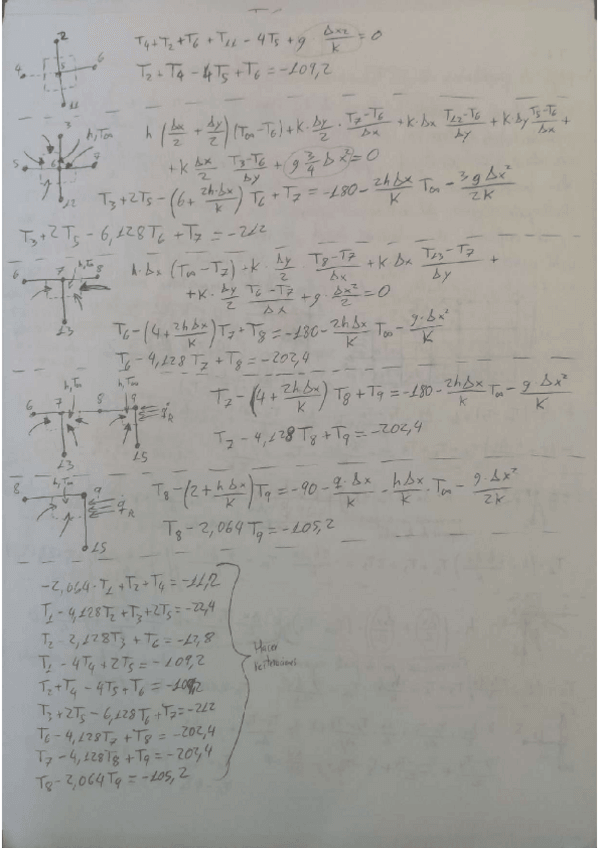 2
4 5 6
11
T4+T2+T6+T11-4T5+g Δx2/K =0
T2+T4-4T5+T6=-109,2
3
h,T∞
5 6 7
12
h(Δx/2+Δy/2)(T∞-T6)+K·Δy/2·T7-T6/Δx+K·Δx T12-T6/Δy+K·Δy T5-T6/Δx+
+K Δx/2·T3-T6/Δy+g 3/4 Δx²=0
T3+2T5-(6+2hΔx/K)T6+T7=-180-2hΔx/K T∞-3gΔx²/2K
T3+2T5-6,128T6+T7=-212
h,T∞
6 7 8
13
h·Δx(T∞-T7)+K·Δy/2·T8-T7/Δx+KΔx T13-T7/Δy+
+K·Δy/2 T6-T7/Δx+g·Δx²/2=0
T6-(4+2hΔx/K)T7+T8=-180-2hΔx/K T∞-g·Δx²/K
T6-4,128T7+T8=-202,4
h,T∞ h,T∞
6 7 8 9
q̇R
13 15
T7-(4+2hΔx/K)T8+T9=-180-2hΔx/K T∞-gΔx²/K
T7-4,128T8+T9=-202,4
h,T∞
8 9
q̇R
15
T8-(2+hΔx/K)T9=-90-q·Δx/K-hΔx/K·T∞-g·Δx²/2K
T8-2,064T9=-105,2
-2,064·T1+T2+T4=-11,2
T1-4,128T2+T3+2T5=-22,4
T2-2,128T3+T6=-12,8
T1-4T4+2T5=-109,2
T2+T4-4T5+T6=-109,2
T3+2T5-6,128T6+T7=-212
T6-4,128T7+T8=-202,4
T7-4,128T8+T9=-202,4
T8-2,064T9=-105,2
Hacer